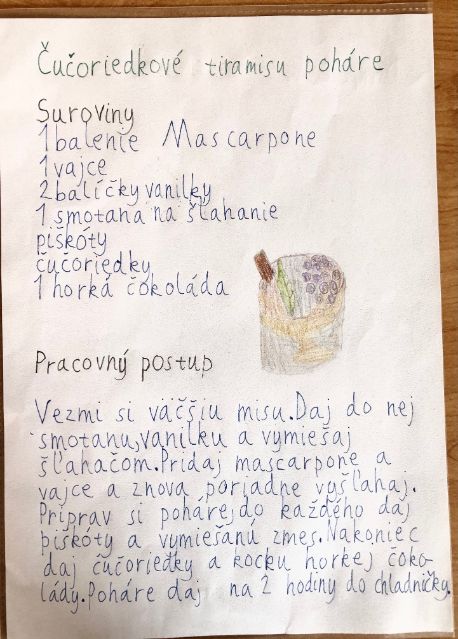 Čučoriedkové tiramisu poháre
Suroviny
1 balenie Mascarpone
1 vajce
2 balíčky vanilky
1 smotana na šľahanie
piškóty
čučoriedky
1 horká čokoláda
Pracovný postup
Vezmi si väčšiu misu. Daj do nej
smotanu, vanilku a vymiešaj
šľahačom. Pridaj mascarpone a
vajce a znova poriadne vyšľahaj.
Priprav si poháre, do každého daj
piškóty a vymiešanú zmes. Nakoniec
daj čučoriedky a kocku horkej čoko-
lády. Poháre daj na 2 hodiny do chladničky.